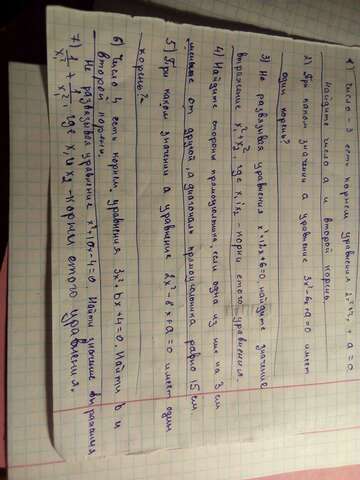 1) Число 3 есть корнем уравнения
Найдите числа а и второй корень.
2) При каком значении а уравнение 3x²-6x+a=0 имеет
один корень?
3) Не развязывая уравнения x²+12x+6=0, найдите значение
выражение x₁²x₂², где x₁ і x₂ корни етого уравнения.
4) Найдите стороны прямоугольника, если одна из них на 3 см
меньше от другой, а диагональ прямоугольника равно 15 см.
5) При каком значении а уравнение 2x²-8x+a=0 имеет один
корень?
6) Число 4 есть корнем уравнения 3x²-bx+4=0. Найти b и
второй корень.
Не развязывая уравнение Найти значение выражения
7) 1/x₁² + 1/x₂², где x₁ и x₂ - корнем етого уравнения.